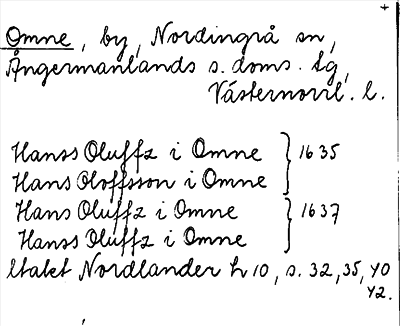 Omne, by, Nordingrå sn,
Ångermanlands s. doms. tg,
Västernorrl. l.
Hanss Oluffz i Omne } 1635
Hans Oloffsson i Omne
Hans Oluffz i Omne } 1637
Hans Oluffz i Omne
Utakt Nordlander h 10, s. 32, 35, 40
42.